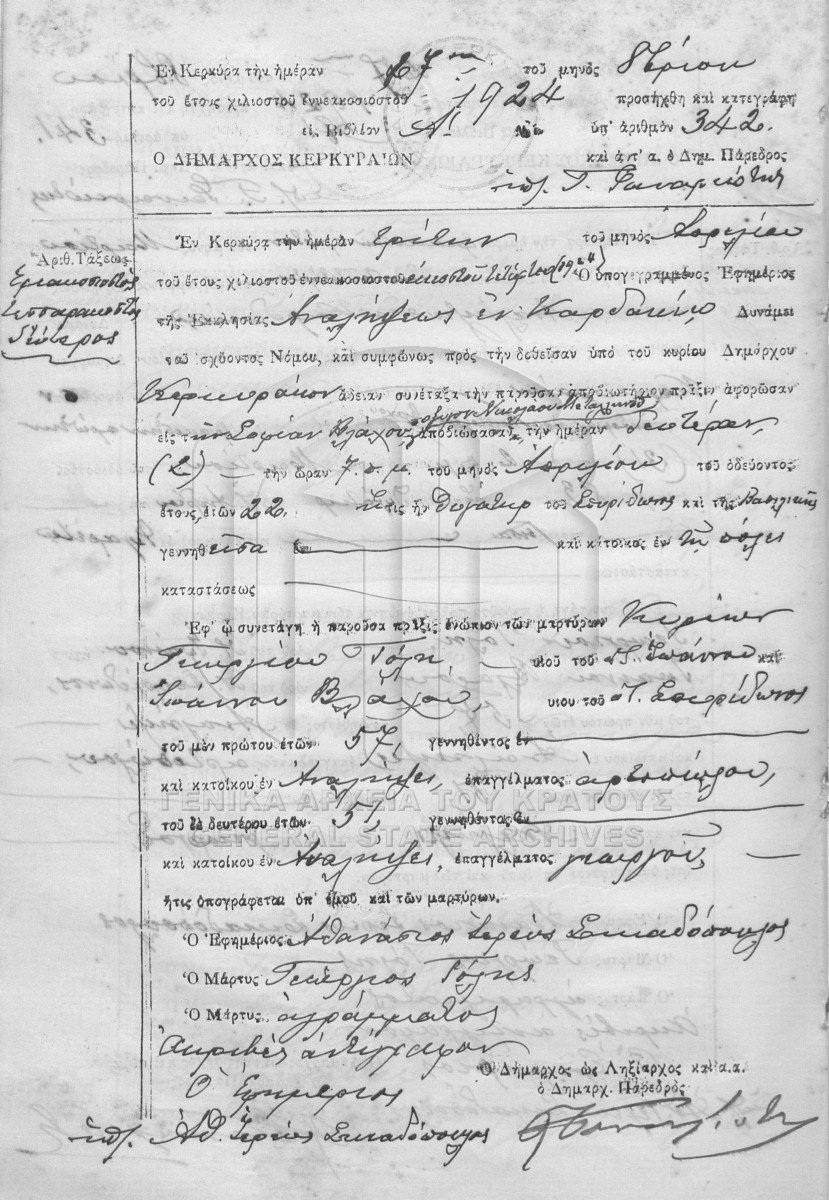 Ἐν Κερκύρᾳ τὴν ἡμέραν 27ην τοῦ μηνὸς 8βρίου
τοῦ ἔτους χιλιοστοῦ ἐννεακοσιοστοῦ 1924 προσήχθη καὶ κατεγράφη
εἰς Βιβλίον Α! ὑπ' ἀριθμὸν 342.
Ὁ ΔΗΜΑΡΧΟΣ ΚΕΡΚΥΡΑΙΩΝ καὶ ἀντ' α. ὁ Δημ. Πάρεδρος
ὑπ. Γ.
Ἀριθ. Τάξεως
Τριακοσιοστὸς
τεσσαρακοστὸς
δεύτερος
Ἐν Κερκύρᾳ τὴν ἡμέραν τρίτην τοῦ μηνὸς Ἀπριλίου
τοῦ ἔτους χιλιοστοῦ ἐννεακοσιοστοῦ εἰκοστοῦ τετάρτου (1924) Ὁ ὑπογεγραμμένος Ἐφημέριος
τῆς Ἐκκλησίας Ἀναλήψεως ἐν Καρδακίῳ Δυνάμει
τοῦ ἰσχύοντος Νόμου, καὶ συμφώνως πρὸς τὴν δοθεῖσαν ὑπὸ τοῦ κυρίου Δημάρχου
Κερκυραίων ἄδειαν συνέταξα τὴν παροῦσαν ἀποβιωτήριον πρᾶξιν ἀφορῶσαν
σύζυγον Νικολάου
εἰς τὴν Σοφίαν Βλάχου ἀποβιώσασαν τὴν ἡμέραν δευτέραν,
(2) τὴν ὥραν 7. μ. τοῦ μηνὸς Ἀπριλίου τοῦ ὁδεύοντος
ἔτους, ἐτῶν 22. ἥτις ἦν θυγάτηρ τοῦ Σπυρίδωνος καὶ τῆς Βασιλικῆς
γεννηθεῖσα καὶ κάτοικος ἐν τῇ πόλει
καταστάσεως
Ἐφ' ᾧ συνετάγη ἡ παροῦσα πρᾶξις ἐνώπιον τῶν μαρτύρων Κυρίων
Γεωργίου Τόλη, υἱοῦ τοῦ Ἰωάννου καὶ
Ἰωάννου Βλάχου, υἱοῦ τοῦ Σπυρίδωνος
τοῦ μὲν πρώτου ἐτῶν 57, γεννηθέντος ἐν
καὶ κατοίκου ἐν Ἀναλήψει, ἐπαγγέλματος ἀρτοπώλου,
ΓΕΝΙΚΑ ΑΡΧΕΙΑ ΤΟΥ ΚΡΑΤΟΥΣ
τοῦ δὲ δευτέρου ἐτῶν 51, γεννηθέντος ἐν
GENERAL STATE ARCHIVES
καὶ κατοίκου ἐν Ἀναλήψει, ἐπαγγέλματος γεωργοῦ,
ἥτις ὑπογράφεται ὑπ' ἐμοῦ καὶ τῶν μαρτύρων.
Ὁ Ἐφημέριος Ἀθανάσιος Ἱερεὺς Σκιαδόπουλος
Ὁ Μάρτυς Γεώργιος Τόλης
Ὁ Μάρτυς ἀγράμματος
Ἀκριβὲς ἀντίγραφον
Ὁ Δήμαρχος ὡς Ληξίαρχος καὶ α.α.
Ὁ Ἐφημέριος
ὁ Δημαρχ. Πάρεδρος
ὑπ. Ἀθ. Ἱερεὺς Σκιαδόπουλος